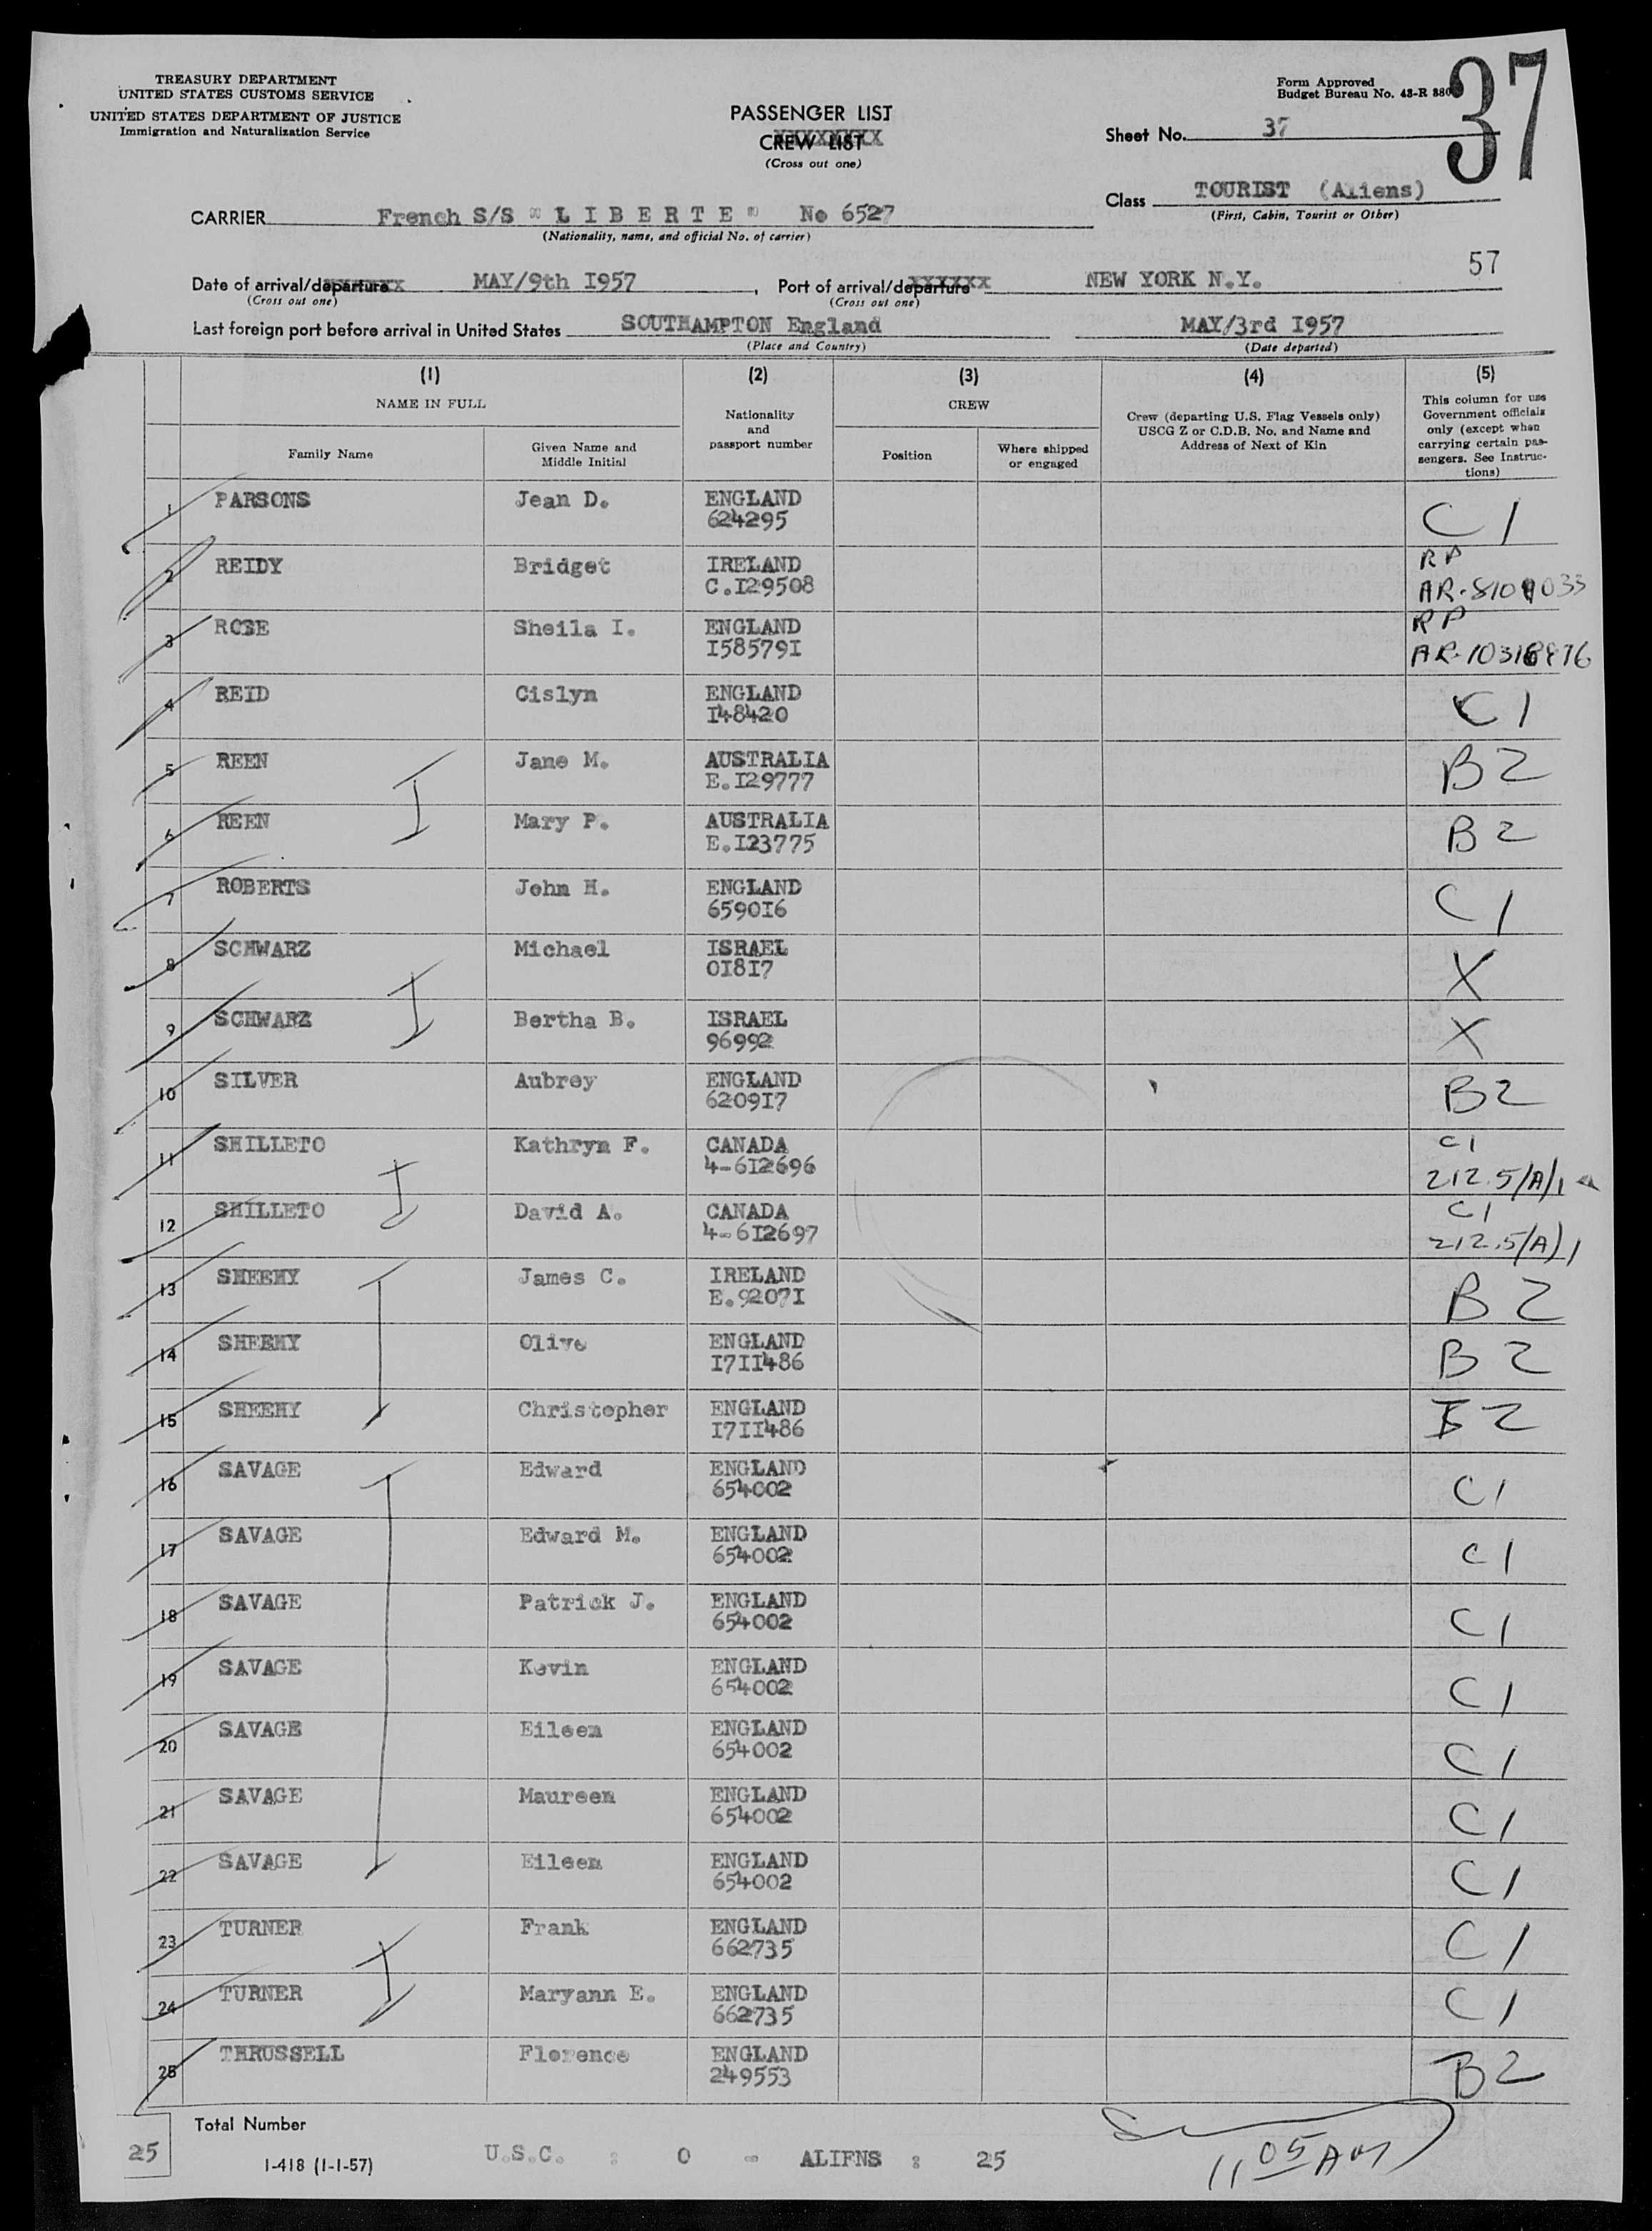 TREASURY DEPARTMENT
UNITED STATES CUSTOMS SERVICE
UNITED STATES DEPARTMENT OF JUSTICE
Immigration and Naturalization Service
PASSENGER LIST
CREW LIST
(Cross out one)
Form Approved
Budget Bureau No. 43-R 880
37
Sheet No. 37
Class TOURIST (Aliens)
(First, Cabin, Tourist or Other)
CARRIER French S/S "LIBERTE" No 6527
(Nationality, name, and official No. of carrier)
57
Date of arrival/departure MAY/9th I957, Port of arrival/departure NEW YORK N.Y.
(Cross out one) (Cross out one)
Last foreign port before arrival in United States SOUTHAMPTON England MAY/3rd I957
(Place and Country) (Date departed)
(1) (2) (3) (4) (5)
NAME IN FULL
Family Name
Given Name and Middle Initial
Nationality and passport number
CREW
Position
Where shipped or engaged
Crew (departing U.S. Flag Vessels only)
USCG Z or C.D.B. No. and Name and
Address of Next of Kin
This column for use
Government officials
only (except when
carrying certain pas-
sengers. See Instruc-
tions)
1 PARSONS Jean D. ENGLAND C1
624295
2 REIDY Bridget IRELAND RP
C.I29508 AR-
3 ROSE Sheila I. ENGLAND RP
I58579I AR-
4 REID Cislyn ENGLAND C1
I48420
5 REEN Jane M. AUSTRALIA B2
E.I29777
6 REEN Mary P. AUSTRALIA B2
E.I23775
7 ROBERTS John H. ENGLAND C1
6590I6
8 SCHWARZ Michael ISRAEL X
0I8I7
9 SCHWARZ Bertha B. ISRAEL X
96992
10 SILVER Aubrey ENGLAND B2
6209I7
11 SHILLETO Kathryn F. CANADA C1
4-6I2696 212.5/A/1
12 SHILLETO David A. CANADA C1
4-6I2697 212.5/A)1
13 SHEEHY James C. IRELAND B2
E.9207I
14 SHEEHY Olive ENGLAND B2
I7II486
15 SHEEHY Christopher ENGLAND B2
I7II486
16 SAVAGE Edward ENGLAND C1
654002
17 SAVAGE Edward M. ENGLAND C1
654002
18 SAVAGE Patrick J. ENGLAND C1
654002
19 SAVAGE Kevin ENGLAND C1
654002
20 SAVAGE Eileen ENGLAND C1
654002
21 SAVAGE Maureen ENGLAND C1
654002
22 SAVAGE Eileen ENGLAND C1
654002
23 TURNER Frank ENGLAND C1
662735
24 TURNER Maryann E. ENGLAND C1
662735
25 THRUSSELL Florence ENGLAND B2
249553
25 Total Number
I-418 (1-1-57) U.S.C. : 0 - ALIENS : 25
11 05 AM